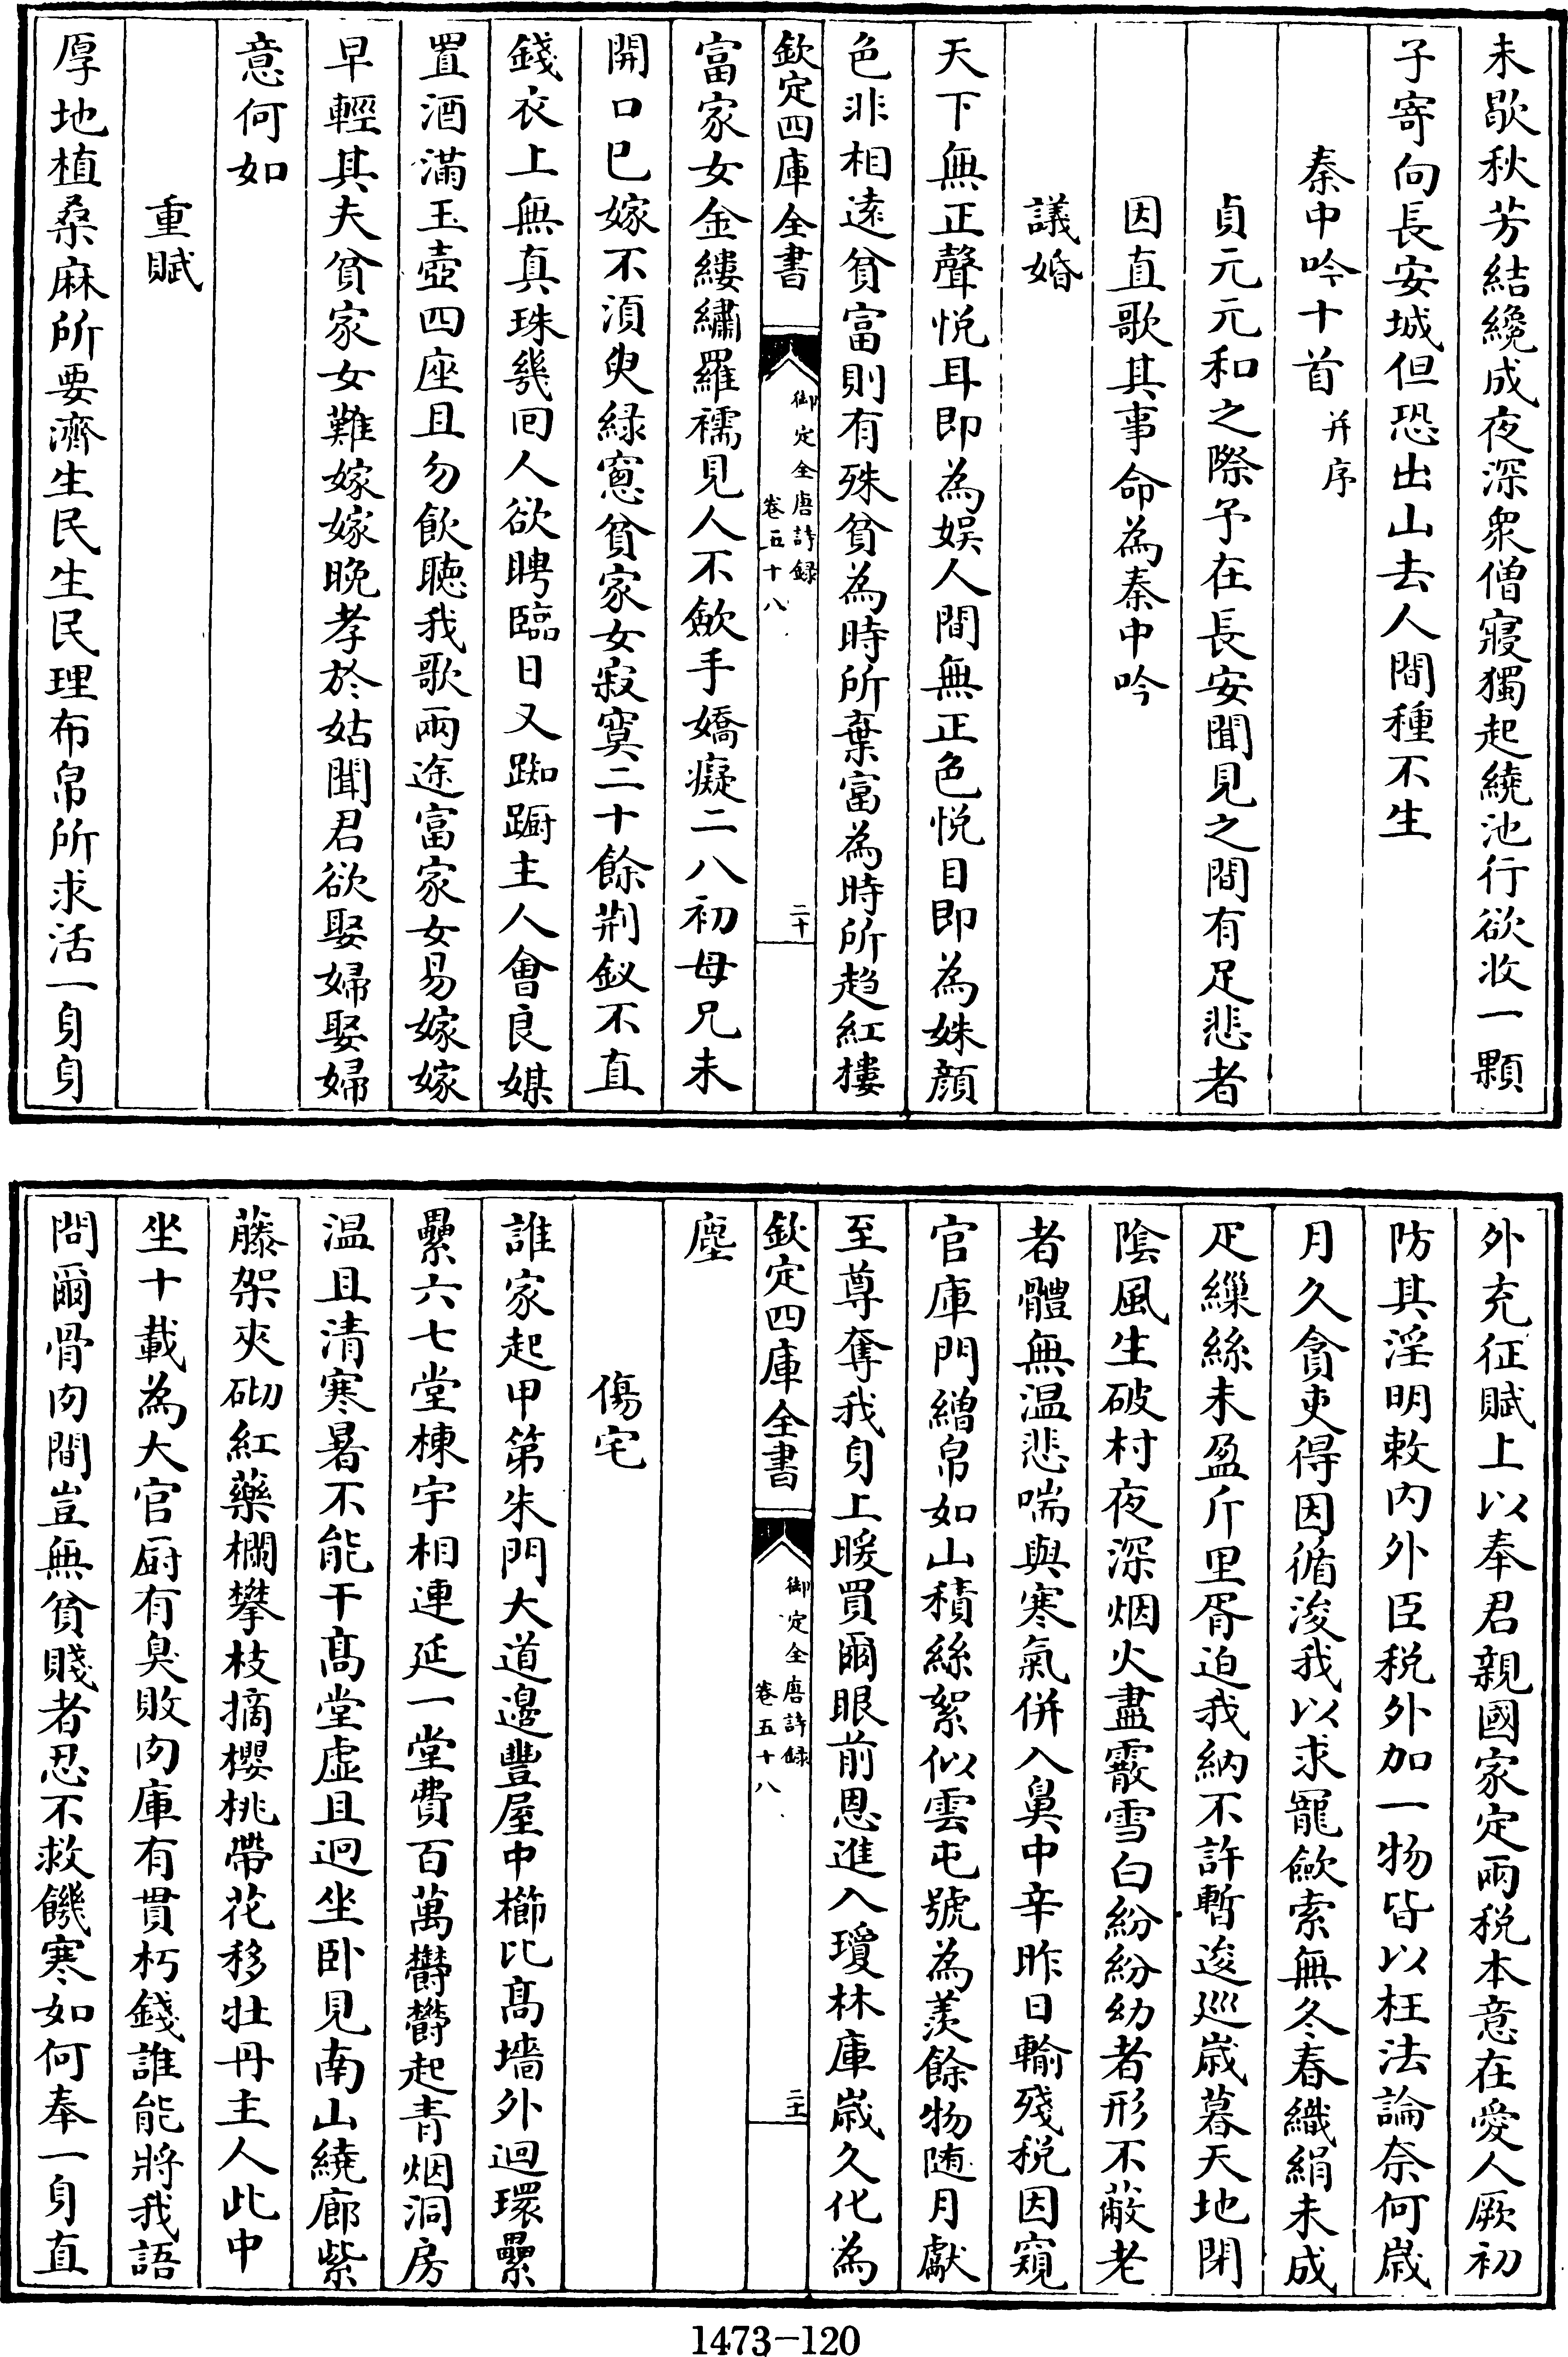 未歇秋芳結纔成夜深衆僧寢獨起繞池行欲收一顆
子寄向長安城但恐出山去人間種不生
秦中吟十首 并序
貞元元和之際予在長安聞見之間有足悲者
因直歌其事命為秦中吟
議婚
天下無正聲悦耳即為娱人間無正色悦目即為姝顔
色非相遠貧富則有殊貧為時所棄富為時所趋紅樓
欽定四庫全書
御定全唐詩録
卷五十八
二十
富家女金縷繡羅襦見人不斂手嬌癡二八初母兄未
開口已嫁不湏臾緑窻貧家女寂寞二十餘荆釵不直
錢衣上無真珠幾回人欲聘臨日又踟蹰主人會良媒
置酒滿玉壺四座且勿飲聽我歌兩途富家女易嫁嫁
早輕其夫貧家女難嫁嫁晚孝於姑聞君欲娶婦娶婦
意何如
重賦
厚地植桑麻所要濟生民生民理布帛所求活一身身
外充征賦上以奉君親國家定兩税本意在愛人厥初
防其淫明敕内外臣税外加一物皆以枉法論奈何歲
月久貪吏得因循浚我以求寵斂索無冬春織絹未成
疋繅絲未盈斤里胥迫我納不許暫逡巡歲暮天地閉
陰風生破村夜深烟火盡霰雪白紛紛幼者形不蔽老
者體無温悲喘與寒氣併入鼻中辛昨日輸殘税因窺
官庫門繒帛如山積絲絮似雲屯號為羨餘物随月獻
至尊奪我身上暖買爾眼前恩進入瓊林庫歲久化為
欽定四庫全書
御定全唐詩録
卷五十八
二十一
塵
傷宅
誰家起甲第朱門大道邊豐屋中櫛比髙墻外迴環纍
纍六七堂棟宇相連延一堂費百萬欝欝起青烟洞房
温且清寒暑不能干髙堂虚且迥坐卧見南山繞廊紫
藤架夾砌紅藥欄攀枝摘櫻桃帶花移牡丹主人此中
坐十載為大官厨有臭敗肉庫有貫朽錢誰能將我語
問爾骨肉間豈無貧賤者忍不救饑寒如何奉一身直
1473-120